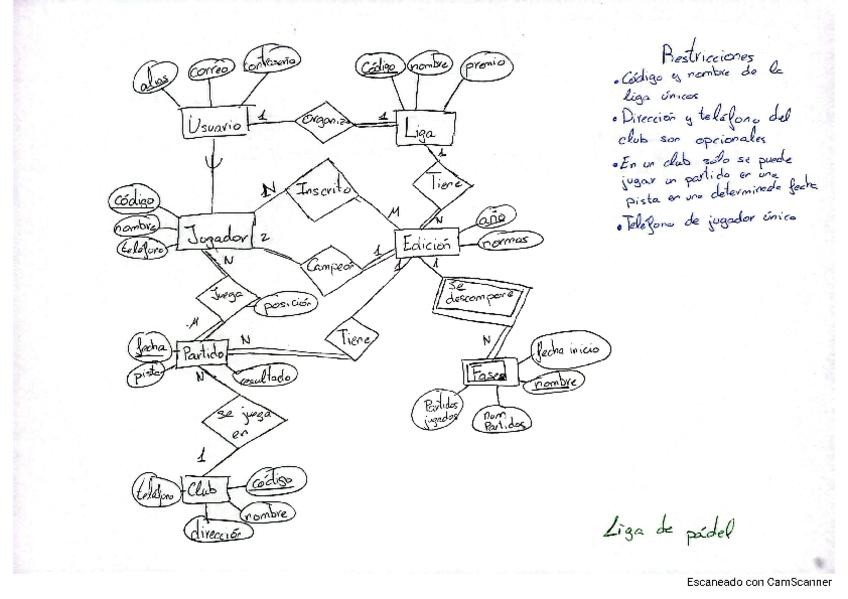 alias
correo
contraseña
Código
nombre
premio
Restricciones
• Código y nombre de la
liga únicos
• Dirección y teléfono del
club son opcionales
• En un club sólo se puede
jugar un partido en una
pista en una determinada fecha
• Teléfono de jugador único
Usuario
1
Organiza
1
Liga
1
Tiene
N
código
nombre
teléfono
Jugador
N
Inscrito
M
2
Campeón
1
Edición
año
normas
N
Juega
posición
M
1
Tiene
N
1
Se
descompone
N
fecha
pista
Partido
resultado
N
Fases
fecha inicio
nombre
Partidos
jugados
num
Partidos
se juega
en
1
teléfono
Club
código
nombre
dirección
Liga de pádel
Escaneado con CamScanner